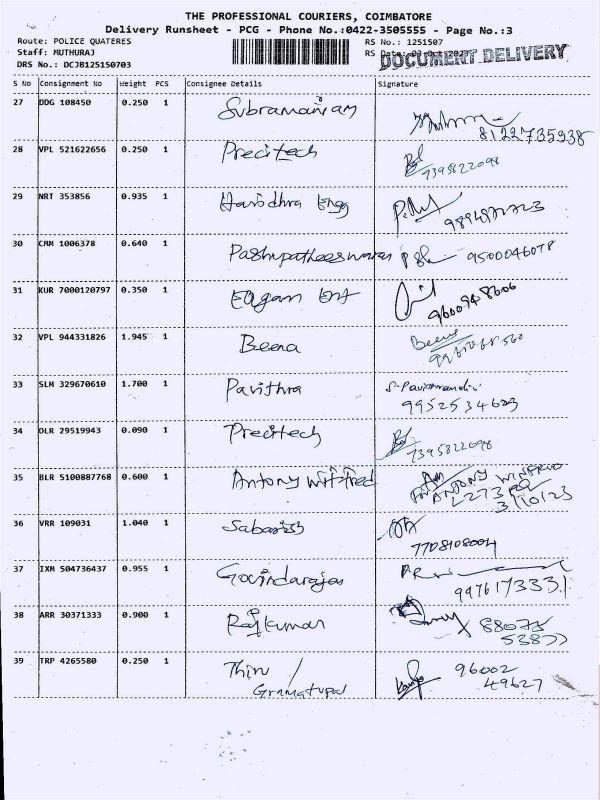 THE PROFESSIONAL COURIERS, COIMBATORE
Delivery Runsheet - PCG - Phone No.:0422-3505555 - Page No.:3
Route: POLICE QUATERES
Staff: MUTHURAJ
DRS No.: DCJB125150703
RS No.: 1251507
RS Date: 03-Oct-2023
DOCUMENT DELIVERY
S No Consignment No Height PCS Consignee Details Signature
27 DDG 108450 0.250 1 Subramaniam
8122735938
28 VPL 521622656 0.250 1 Precitech
7395822098
29 NRT 353856 0.935 1 Engg
30 CMM 1006378 0.640 1 Pashupatheeswaran 9500046078
31 KUR 7000120797 0.350 1
9600948606
32 VPL 944331826 1.945 1 Beena Beena
33 SLM 329670610 1.700 1 Pavithra
9952534623
34 DLR 29519943 0.090 1 Precitech
7395822098
35 BLR 5100887768 0.600 1 Antony Wilfred ANTONY
3/10/23
36 VRR 109031 1.040 1 Sabarish
7708108004
37 IXM 504736437 0.955 1 Govindarajan
9976173331
38 ARR 30371333 0.900 1 Rajkumar 88075
53877
39 TRP 4265580 0.250 1 Thiru / 96002
49627